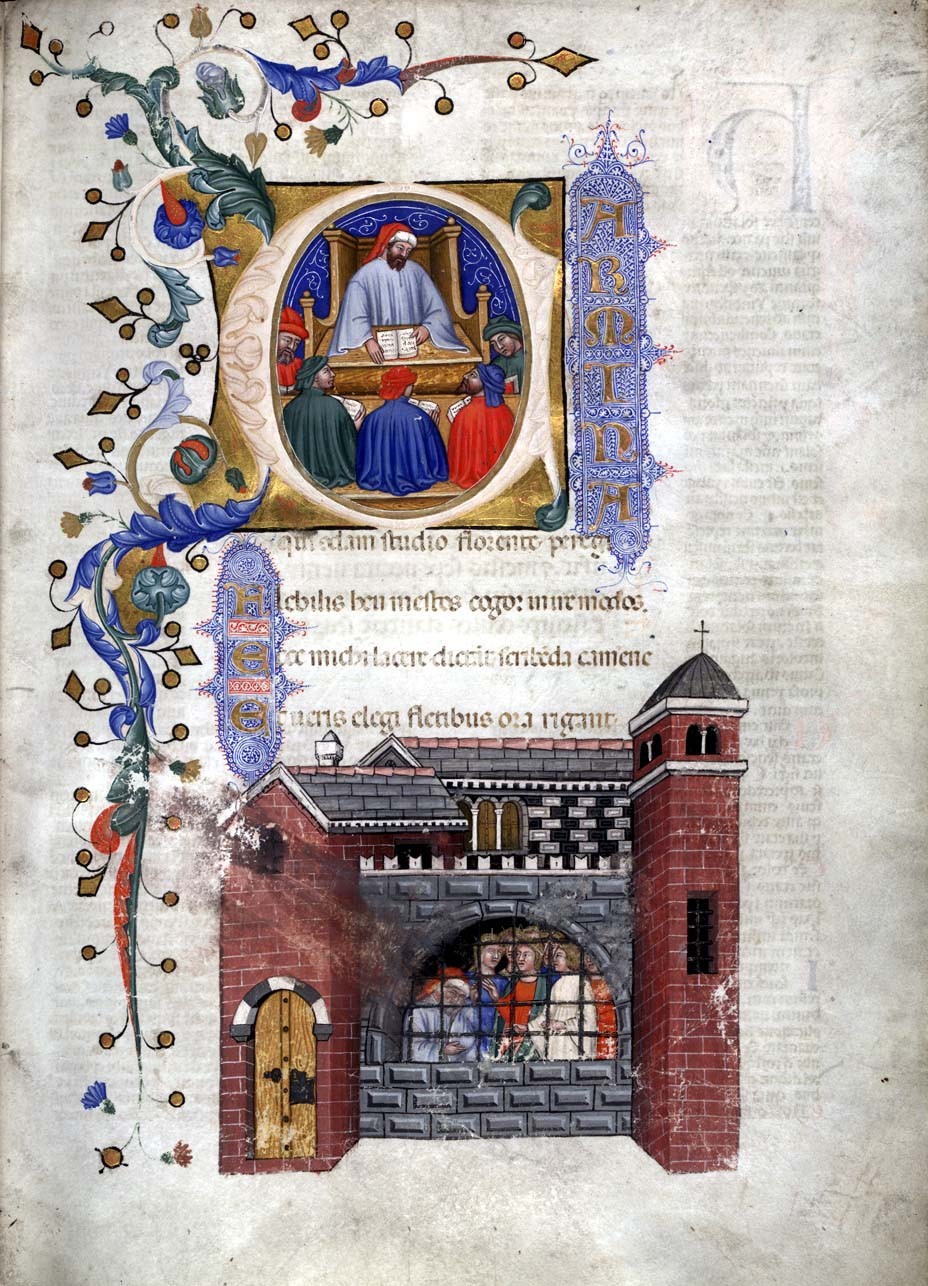 4
CARMINA
qui qōdam studio florente peregi
Flebilis heu mestos cogor inire modos.
Ecce michi lacere dictāt scribēda camene
Et ueris elegi fletibus ora rigant.